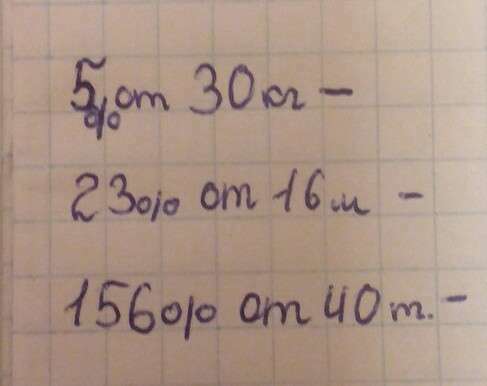 5% от 30 кг –
23% от 16 м –
156% от 40 т. –